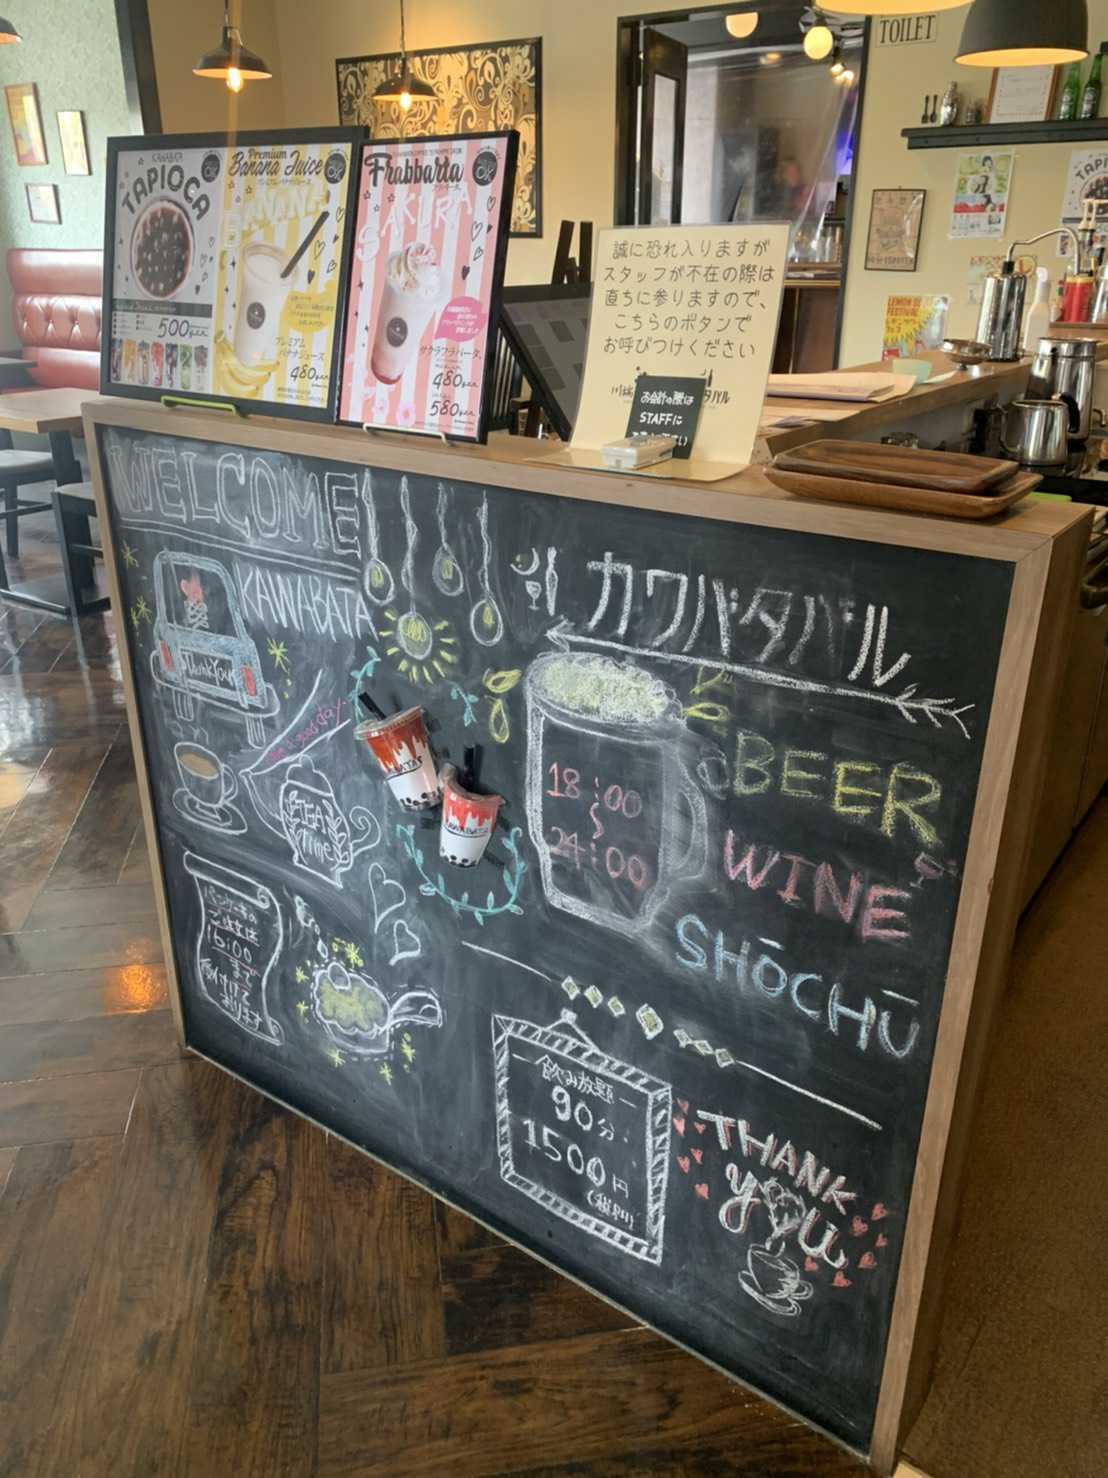 TOILET
KAWABATA
TAPIOCA
500yen
Premium
Banana Juice
プレミアムバナナジュース
BANANA
プレミアム
バナナジュース
480yen
Frabbarta
SAKURA
サクラフラバータ
480yen
580yen
誠に恐れ入りますが
スタッフが不在の際は
直ちに参りますので、
こちらのボタンで
お呼びつけください
お会計の際は
STAFFに
LEMON
FESTIVAL
WELCOME
KAWABATA
Thank You
have a good day
TEA
time
KAWABATA
パンケーキの
ご注文は
16:00
まで
受け付けて
おります
カワバタバル
18:00
〜
24:00
BEER
WINE
SHŌCHŪ
飲み放題
90分
1500円
(税別)
THANK
you